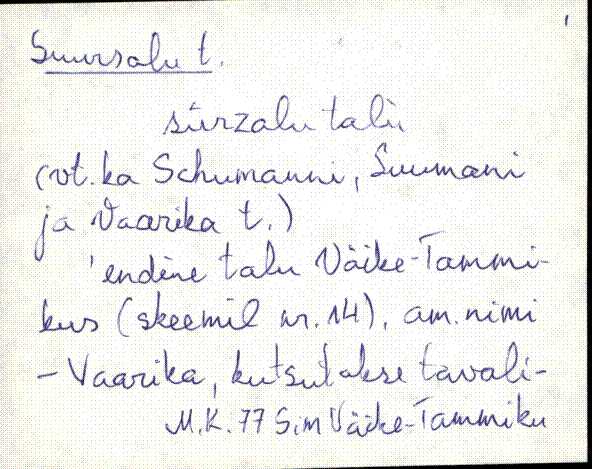 Suursalu t.
sūrzalu talù
(vt. ka Schumanni, Suumani
ja Vaarika t.)
'endine talu Väike-Tammi-
kus (skeemil nr. 14), am. nimi
- Vaarika, kutsutakse tavali-
M.K. 77 Sim Väike-Tammiku